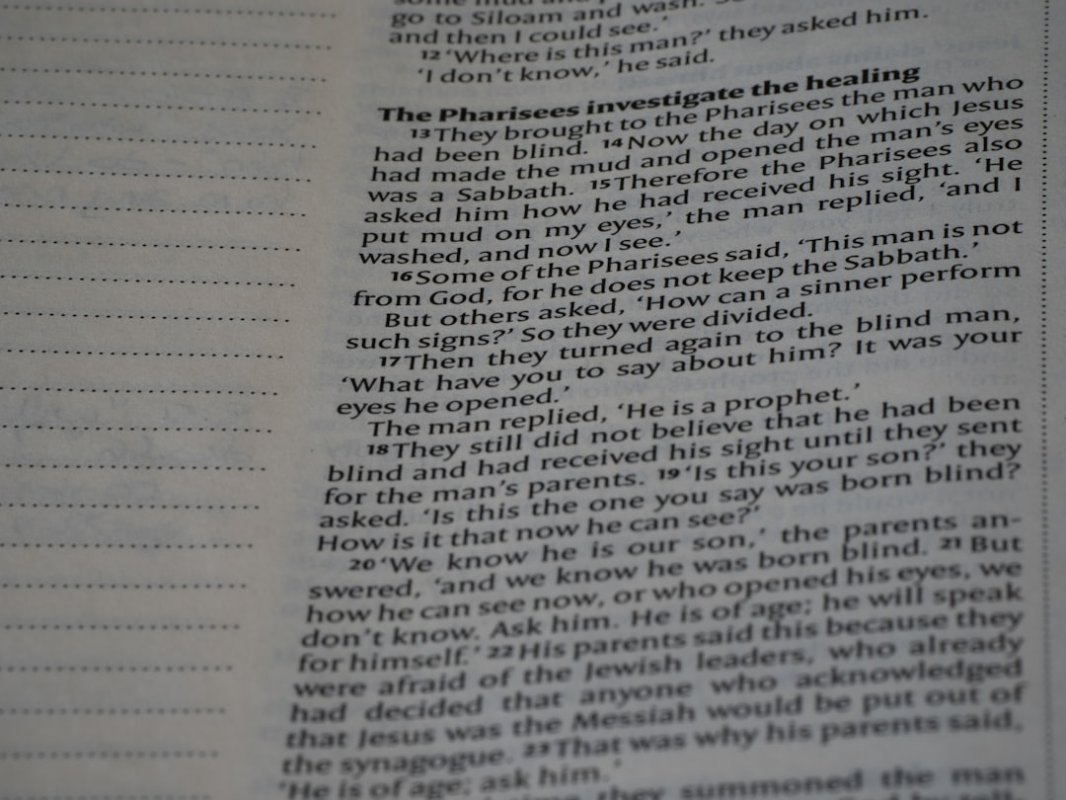 go to Siloam and wash.
and then I could see.’
12 ‘Where is this man?’ they asked him.
‘I don’t know,’ he said.
The Pharisees investigate the healing
13 They brought to the Pharisees the man who
had been blind. 14 Now the day on which Jesus
had made the mud and opened the man’s eyes
was a Sabbath. 15 Therefore the Pharisees also
asked him how he had received his sight. ‘He
put mud on my eyes,’ the man replied, ‘and I
washed, and now I see.’
16 Some of the Pharisees said, ‘This man is not
from God, for he does not keep the Sabbath.’
But others asked, ‘How can a sinner perform
such signs?’ So they were divided.
17 Then they turned again to the blind man,
‘What have you to say about him? It was your
eyes he opened.’
The man replied, ‘He is a prophet.’
18 They still did not believe that he had been
blind and had received his sight until they sent
for the man’s parents. 19 ‘Is this your son?’ they
asked. ‘Is this the one you say was born blind?
How is it that now he can see?’
20 ‘We know he is our son,’ the parents an-
swered, ‘and we know he was born blind. 21 But
how he can see now, or who opened his eyes, we
don’t know. Ask him. He is of age; he will speak
for himself.’ 22 His parents said this because they
were afraid of the Jewish leaders, who already
had decided that anyone who acknowledged
that Jesus was the Messiah would be put out of
the synagogue. 23 That was why his parents said,
‘He is of age; ask him.’
they summoned the man